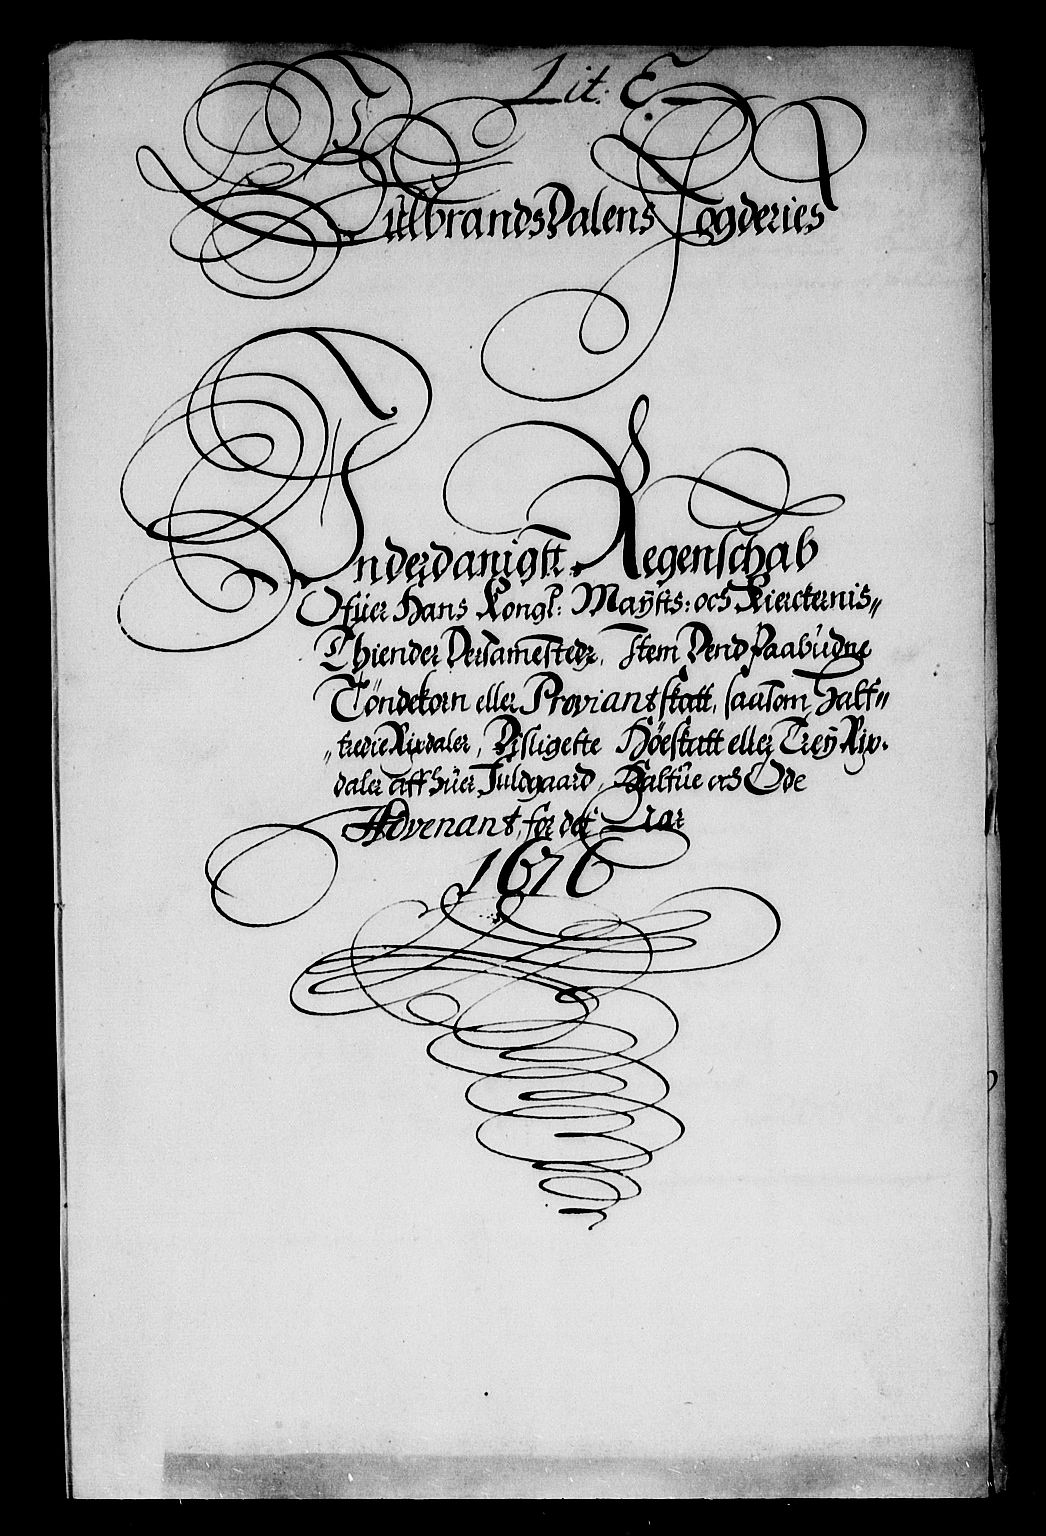 Lit. E.
Gulbrands Dalens Fogderies
Underdanigst Regenschab
Ofuer Hans Kongl: Mayſts: och Kierckernis„
Thiender Dersamesteds, Item Dend Paabudne
Töndekorn eller Proviantskatt, saasom Half„
„tredie Rixdaler, Disligeste Höeskatt eller Trey Rix.
daler aff huer Fuldgaard, Halfue och Öde
Advenant, for det Aar
1676